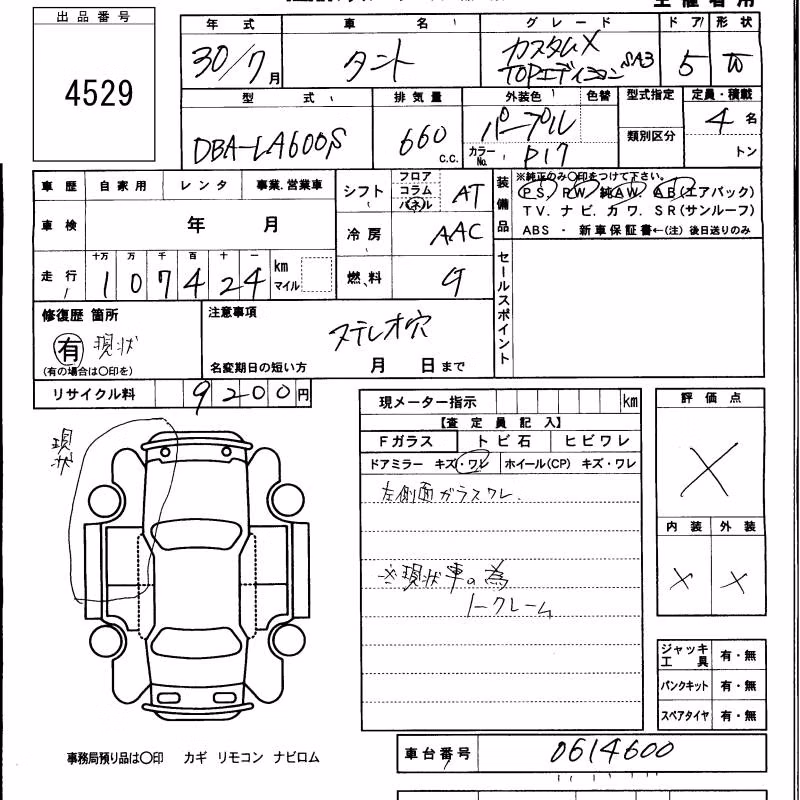 出品番号
4529
年式 車名 グレード ドア 形状
30/7月 タント カスタムX
TOPエディションSA3 5 W
型式 排気量 外装色 色替 型式指定 定員・積載
DBA-LA600S 660 c.c. パープル 類別区分 4 名
カラーNo. P17 トン
車歴 自家用 レンタ 事業.営業車
車検 年 月
走行 十万 万 千 百 十 一
1 0 7 4 2 4 km マイル
シフト フロア コラム パネル AT
冷房 AAC
燃料 G
装備品
※純正のみ〇印をつけて下さい。
PS. PW. 純AW. AB(エアバック)
TV. ナビ. カワ. SR(サンルーフ)
ABS ・ 新車保証書←(注)後日送りのみ
セールスポイント
修復歴 箇所
有 現状
(有の場合は〇印を)
注意事項
ステレオ穴
名変期日の短い方 月 日まで
リサイクル料 9200円
現状
現メーター指示 km
【査定員記入】
Fガラス トビ石 ヒビワレ
ドアミラー キズ・ワレ ホイール(CP) キズ・ワレ
左側面ガラスワレ.
※現状車の為
ノークレーム
評価点
X
内装 外装
X X
ジャッキ工具 有・無
パンクキット 有・無
スペアタイヤ 有・無
事務局預り品は〇印 カギ リモコン ナビロム
車台番号 0614600